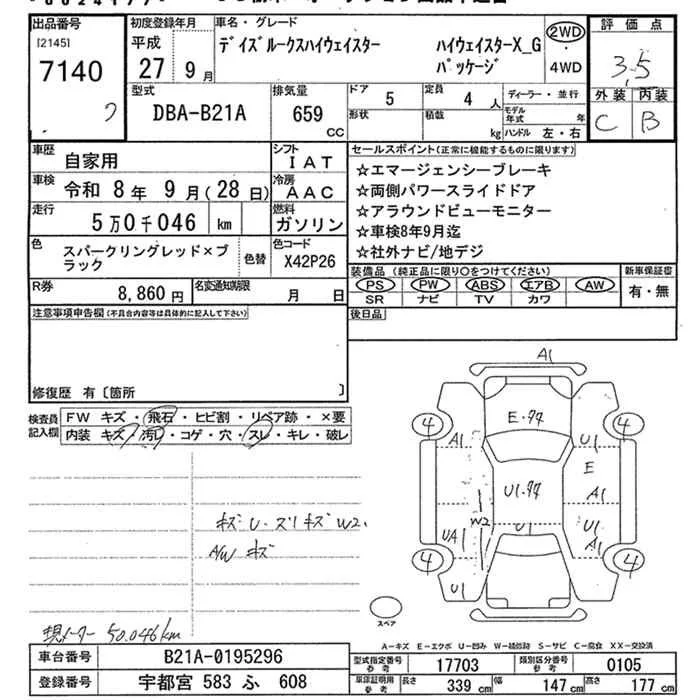 出品番号 [2145] 7140
初度登録年月 平成 27年 9月
車名・グレード デイズルークスハイウェイスター ハイウェイスターX_G パッケージ
2WD・4WD
評価点 3.5
外装 C 内装 B
型式 DBA-B21A
排気量 659 CC
ドア 5 形状
定員 4人 積載 kg
ディーラー・並行
モデル年式 年
ハンドル 左・右
車歴 自家用
シフト IAT
車検 令和 8年 9月(28日)
冷房 AAC
走行 5万0千046 km
燃料 ガソリン
色 スパークリングレッド×ブラック
色替
色コード X42P26
R券 8,860円
名変通知期限 月 日
セールスポイント(正常に機能するものに限ります)
☆エマージェンシーブレーキ
☆両側パワースライドドア
☆アラウンドビューモニター
☆車検8年9月迄
☆社外ナビ/地デジ
装備品 (純正品に限り○をつけてください)
PS PW ABS エアB AW
SR ナビ TV カワ
新車保証書 有・無
後日品
注意事項申告欄(不具合内容等は具体的に記入して下さい)
修復歴 有〔箇所 〕
検査員記入欄
FW キズ・飛石・ヒビ割・リペア跡・×要
内装 キズ・汚レ・コゲ・穴・スレ・キレ・破レ
キズ U・スリキズ W2,
A/W キズ
現メーター 50,046km
A1
4 4
E・サヤ
A1 U1
E
U1・サヤ
A1
W2 U1 U1
UA1 A1
4 4
U1
スペア
A-キズ E-エクボ U-凹み W-補修跡 S-サビ C-腐食 XX-交換済
車台番号 B21A-0195296
型式指定番号 参考 17703
類別区分番号 参考 0105
登録番号 宇都宮 583 ふ 608
車庫証明用 参考 長さ 339 cm 幅 147 cm 高さ 177 cm